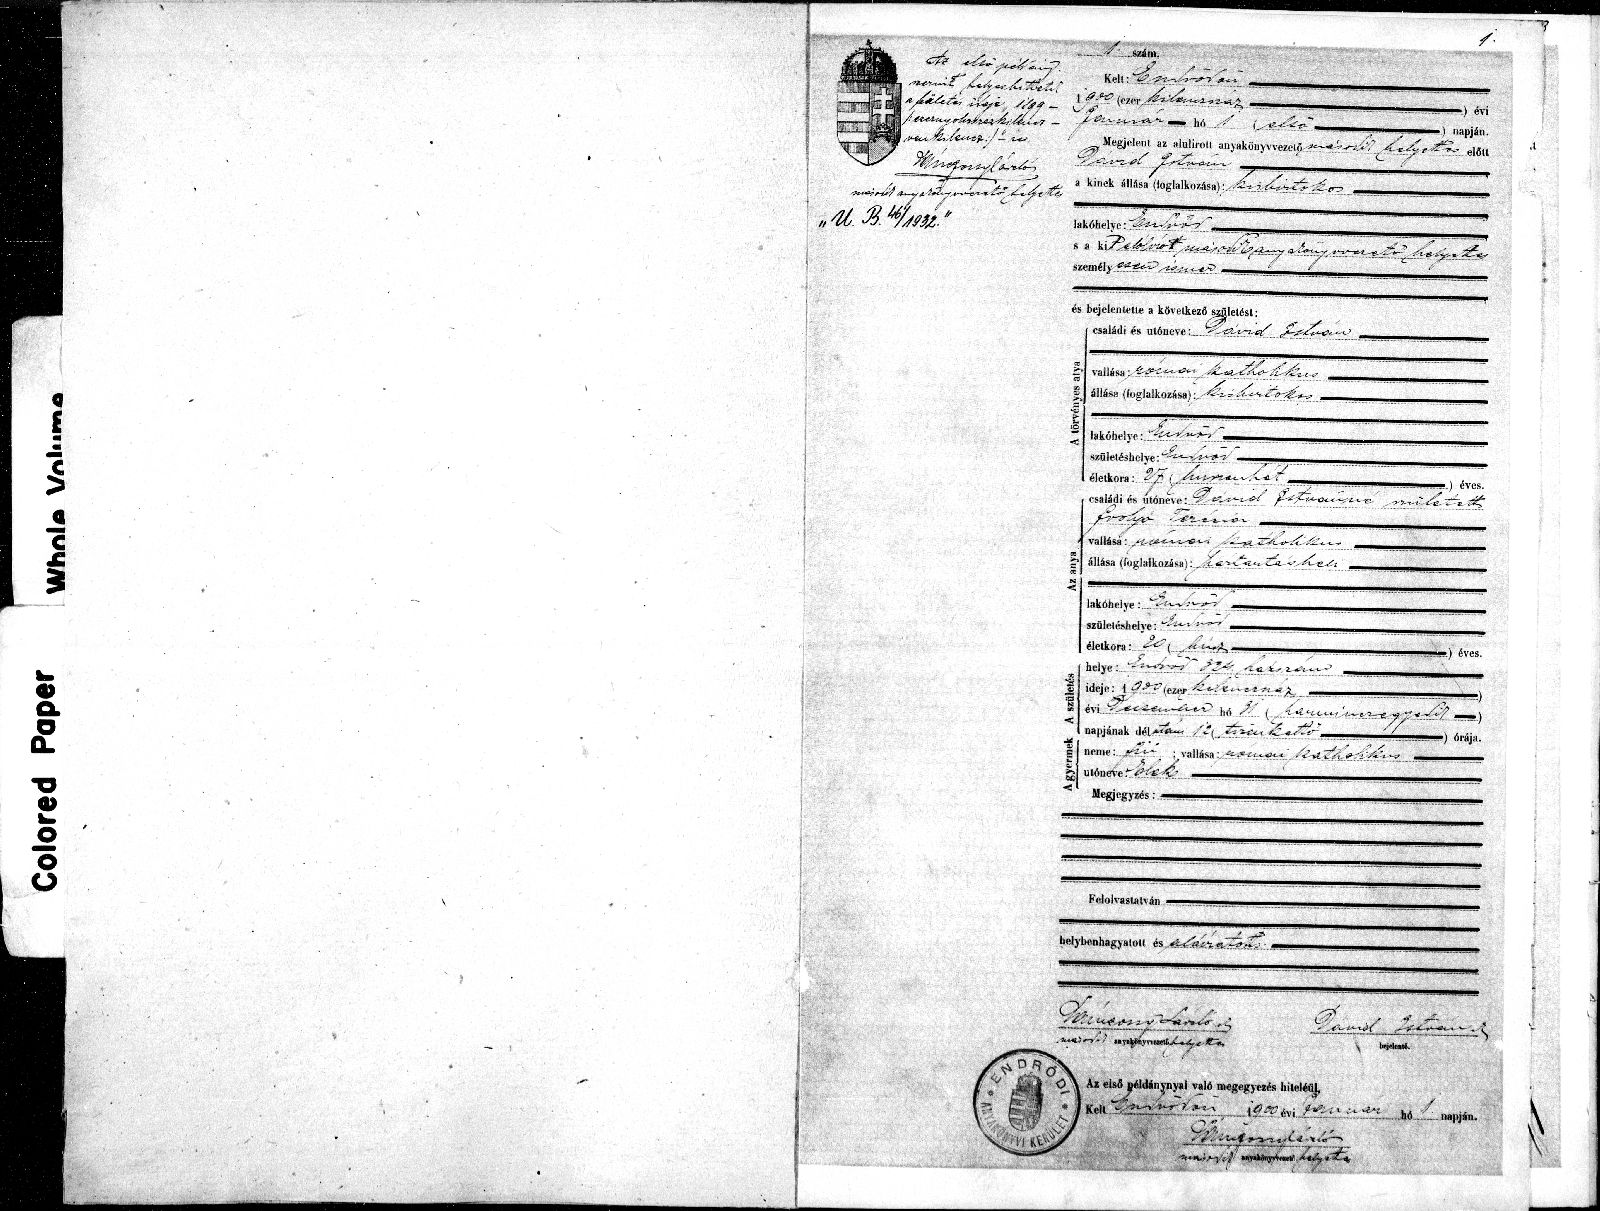 Whole Volume
Colored Paper
1.
Az első példány
szerint helyesbittetik
a születés ideje, 1899 –
/ezernyolcszázkilenc-
venkilencz./"-re
László
másod anyakönyvvezető helyettes
„U. B. 46/1932."
1 szám.
Kelt: Endrődön
1900 (ezer kilenczszáz) évi
Január hó 1 (első) napján.
Megjelent az alulirott anyakönyvvezető másod helyettes előtt
Dávid István
a kinek állása (foglalkozása): kisbirtokos
lakóhelye: Endrőd
s a kit alólirott másod anyakönyvvezető helyettes
személyesen ismer
és bejelentette a következő születést:
A törvényes atya
családi és utóneve: Dávid István
vallása: római katholikus
állása (foglalkozása): kisbirtokos
lakóhelye: Endrőd
születéshelye: Endrőd
életkora: 27 (huszonhét) éves.
Az anya
családi és utóneve: Dávid Istvánné született
Terézia
vallása: római katholikus
állása (foglalkozása): háztartásbeli
lakóhelye: Endrőd
születéshelye: Endrőd
életkora: 20 (húsz) éves.
A születés
helye: Endrőd házszám
ideje: 1900 (ezer kilenczszáz)
évi Deczember hó 31 (harminczegyedik)
napjának délután 12 (tizenkettő) órája.
A gyermek
neme: fiú; vallása: római katholikus
utóneve: Elek
Megjegyzés:
Felolvastatván
helybenhagyatott és aláiratott.
László
másod anyakönyvvezető helyettes
Dávid István
bejelentő.
ENDRŐDI
ANYAKÖNYVI KERÜLET
Az első példánynyal való megegyezés hiteléül,
Kelt Endrődön 1900 évi Január hó 1 napján.
László
másod anyakönyvvezető helyettes